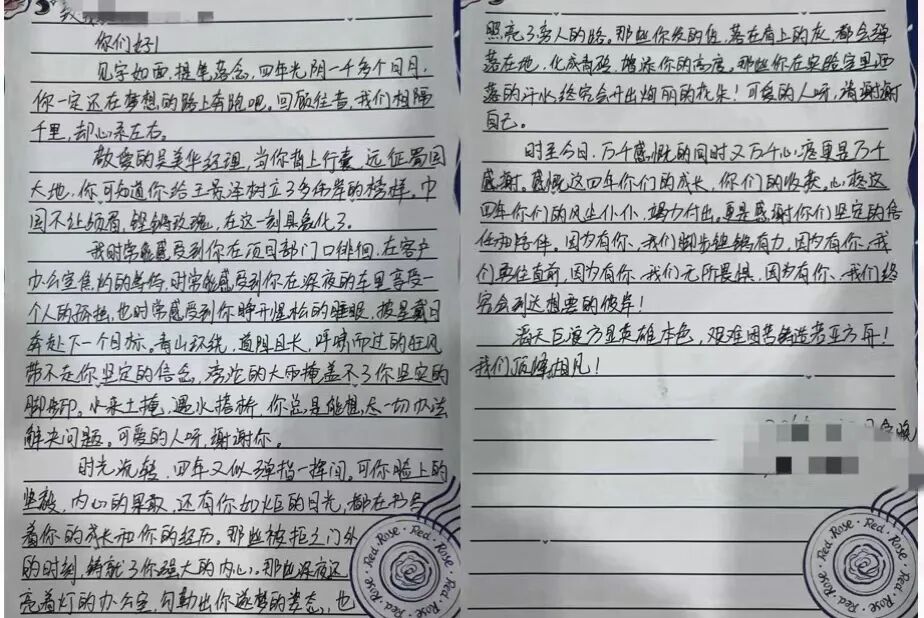 致
你们好！
见字如面，提笔落念，四年光阴一千多个日月，
你一定还在梦想的路上奔跑吧。回顾往昔，我们相隔
千里，却心系左右。
敬爱的吴美华经理，当你背上行囊，远征蜀国
大地，你可知道你给王景泽树立了多伟岸的榜样。巾
帼不让须眉，铿锵玫瑰，在这一刻具象化了。
我时常能感受到你在项目部门口徘徊，在客户
办公室焦灼的等待，时常能感受到你在深夜的车里享受一
个人的孤独，也时常感受到你睁开惺忪的睡眼，披星戴月
奔赴下一个目标。青山环绕，道阻且长，呼啸而过的狂风
带不走你坚定的信念，滂沱的大雨掩盖不了你坚实的
脚印。水来土掩，遇水搭桥，你总是能想尽一切办法
解决问题。可爱的人呀，谢谢你。
时光流转，四年又似弹指一挥间。可你脸上的
坚毅，内心的果敢，还有你如炬的目光，都在书写
着你的成长和你的经历。那些被拒之门外
的时刻，铸就了你强大的内心。那些深夜还
亮着灯的办公室，勾勒出你逐梦的姿态，也
照亮了旁人的路。那些你受的住，落在肩上的灰，都会弹
落在地，化成高强，增添你的高度。那些你在实验室里洒
落的汗水终究会开出绚丽的花朵！可爱的人呀，请谢谢
自己。
时至今日，万千感慨的同时又万千心疼更是万千
感谢。感慨这四年你们的成长，你们的收获。心疼这
四年你们的风尘仆仆，竭力付出。更是感谢你们坚定的信
任和陪伴。因为有你，我们脚步铿锵有力，因为有你，我
们勇往直前，因为有你，我们无所畏惧，因为有你，我们终
究会到达想要的彼岸！
滔天巨浪方显英雄本色，艰难困苦铸造着
我们顶峰相见！
Red Rose · Red Rose · Red Rose
Red Rose · Red Rose · Red Rose